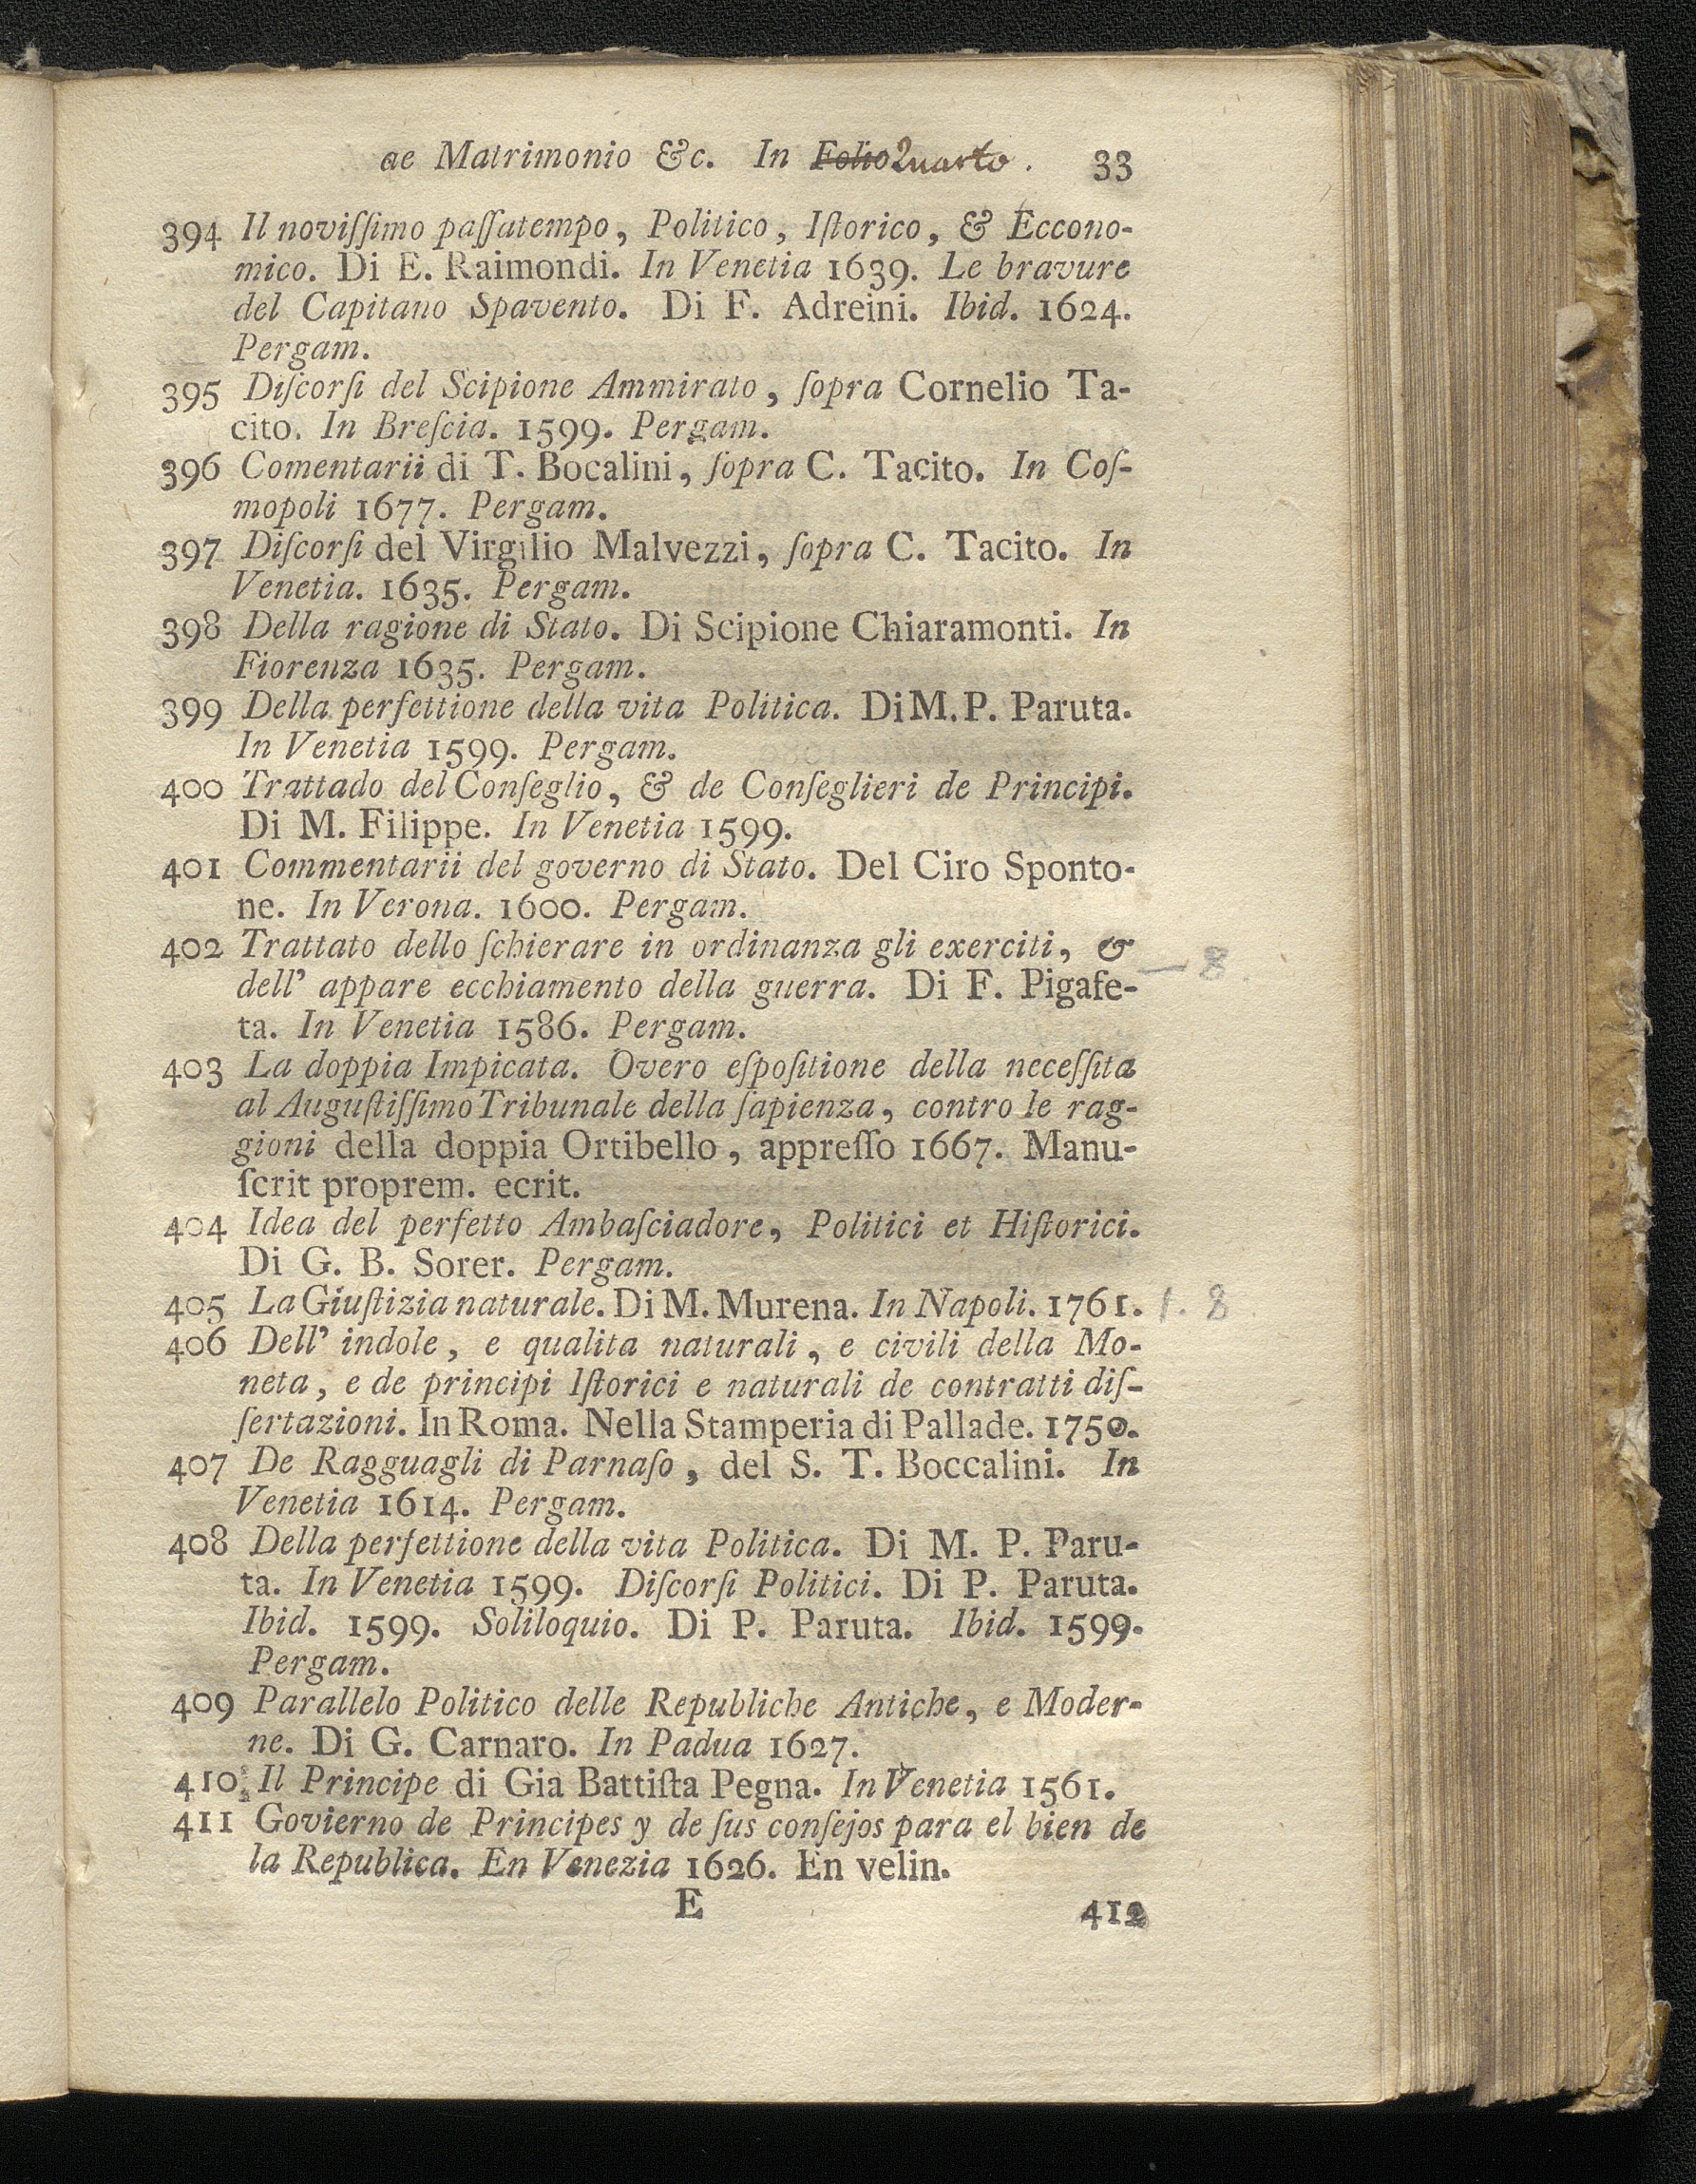 ae Matrimonio &c. In Folio Quarto. 33
394 Il noviſſimo paſſatempo, Politico, Iſtorico, & Eccono-
mico. Di E. Raimondi. In Venetia 1639. Le bravure
del Capitano Spavento. Di F. Adreini. Ibid. 1624.
Pergam.
395 Diſcorſi del Scipione Ammirato, ſopra Cornelio Ta-
cito. In Breſcia. 1599. Pergam.
396 Comentarii di T. Bocalini, ſopra C. Tacito. In Coſ-
mopoli 1677. Pergam.
397 Diſcorſi del Virgilio Malvezzi, ſopra C. Tacito. In
Venetia. 1635. Pergam.
398 Della ragione di Stato. Di Scipione Chiaramonti. In
Fiorenza 1635. Pergam.
399 Della perfettione della vita Politica. Di M. P. Paruta.
In Venetia 1599. Pergam.
400 Trattado del Conſeglio, & de Conſeglieri de Principi.
Di M. Filippe. In Venetia 1599.
401 Commentarii del governo di Stato. Del Ciro Sponto-
ne. In Verona. 1600. Pergam.
402 Trattato dello ſchierare in ordinanza gli exerciti, &
— 8
dell' appare ecchiamento della guerra. Di F. Pigafe-
ta. In Venetia 1586. Pergam.
403 La doppia Impicata. Overo eſpoſitione della neceſſita
al Auguſtiſſimo Tribunale della ſapienza, contro le rag-
gioni della doppia Ortibello, appreſſo 1667. Manu-
ſcrit proprem. ecrit.
404 Idea del perfetto Ambaſciadore, Politici et Hiſtorici.
Di G. B. Sorer. Pergam.
405 La Giuſtizia naturale. Di M. Murena. In Napoli. 1761. 1. 8
406 Dell' indole, e qualita naturali, e civili della Mo-
neta, e de principi Iſtorici e naturali de contratti diſ-
ſertazioni. In Roma. Nella Stamperia di Pallade. 1750.
407 De Ragguagli di Parnaſo, del S. T. Boccalini. In
Venetia 1614. Pergam.
408 Della perfettione della vita Politica. Di M. P. Paru-
ta. In Venetia 1599. Diſcorſi Politici. Di P. Paruta.
Ibid. 1599. Soliloquio. Di P. Paruta. Ibid. 1599.
Pergam.
409 Parallelo Politico delle Republiche Antiche, e Moder-
ne. Di G. Carnaro. In Padua 1627.
410 Il Principe di Gia Battiſta Pegna. In Venetia 1561.
411 Govierno de Principes y de ſus conſejos para el bien de
la Republica. En Venezia 1626. En velin.
E 412